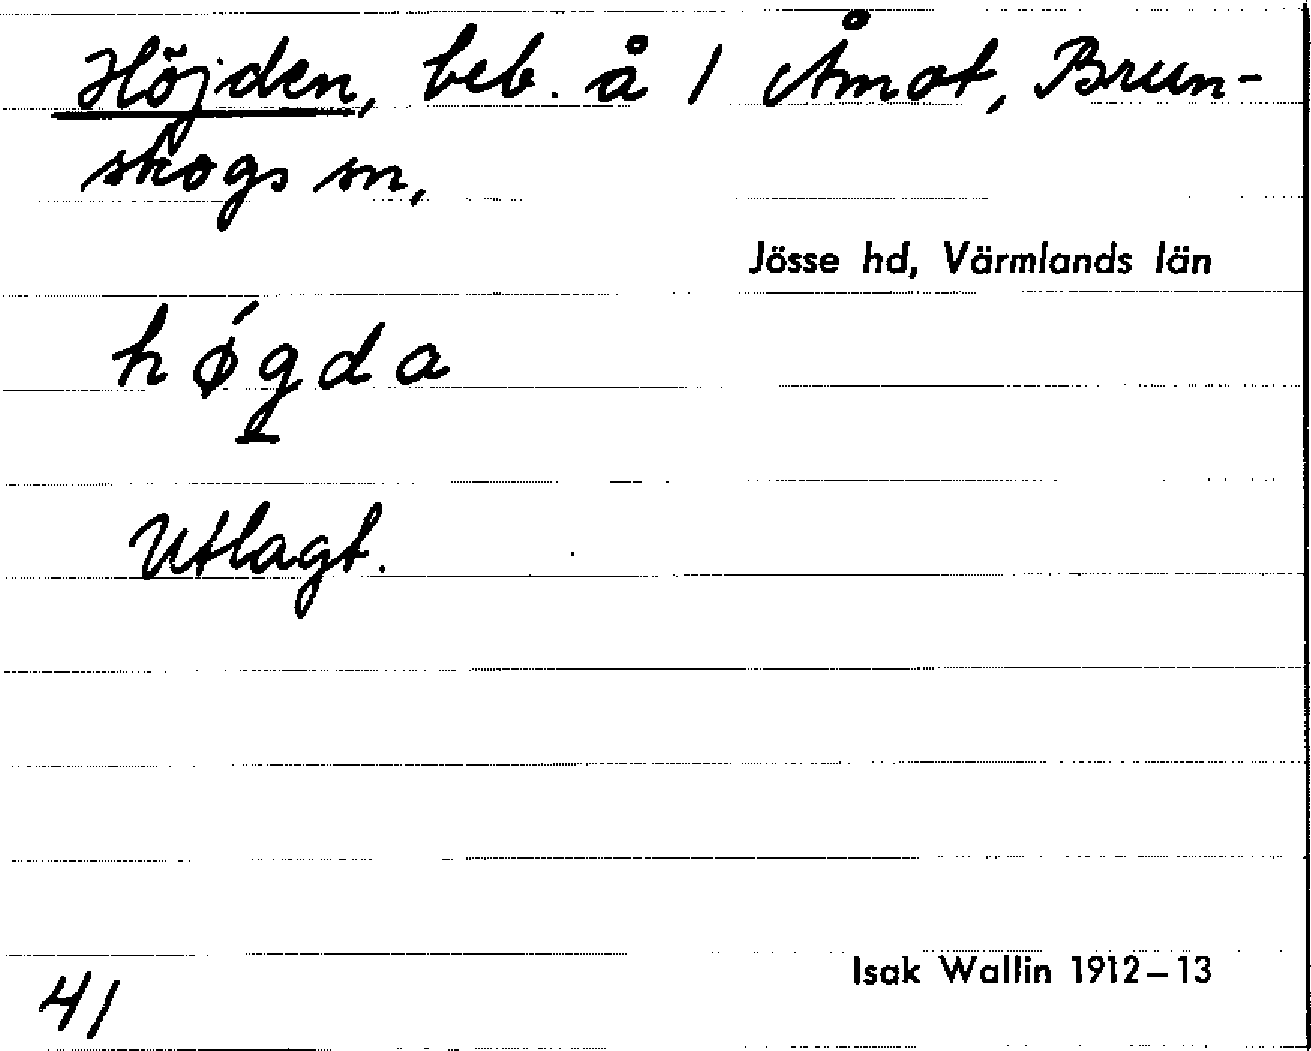 Höjden, beb. å 1 Åmot, Brun-
skogs sn,
Jösse hd, Värmlands län
hǿgda
Utlagt.
Isak Wallin 1912–13
41